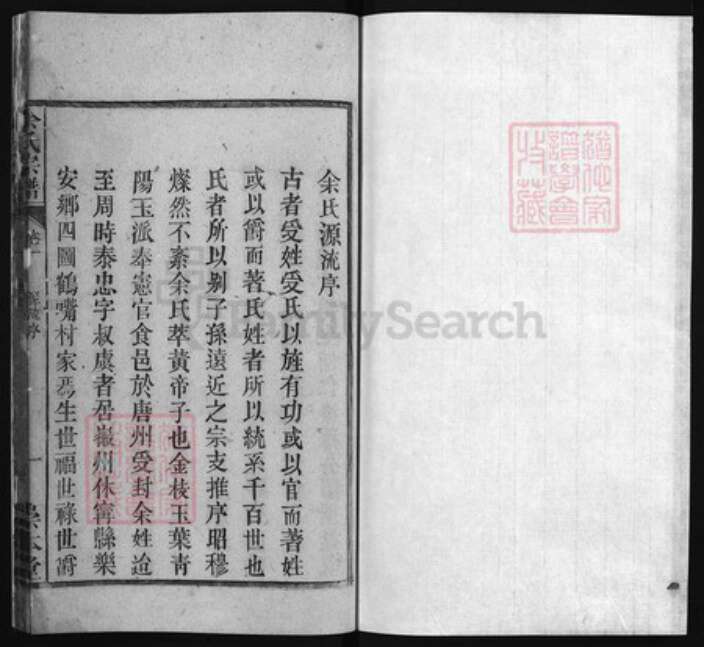 余氏源流序
古者受姓受氏以旌有功或以官而著姓
或以爵而著氏姓者所以統系千百世也
氏者所以别子孫遠近之宗支推序昭穆
燦然不紊余氏萃黃帝子也金枝玉葉青
陽玉派奉憲官食邑於唐州受封余姓迨
至周時泰忠字叔虞者居徽州休寧縣樂
安鄉四圖鶴嘴村家焉生世福世祿世爵
余氏宗譜
一
FamilySearch